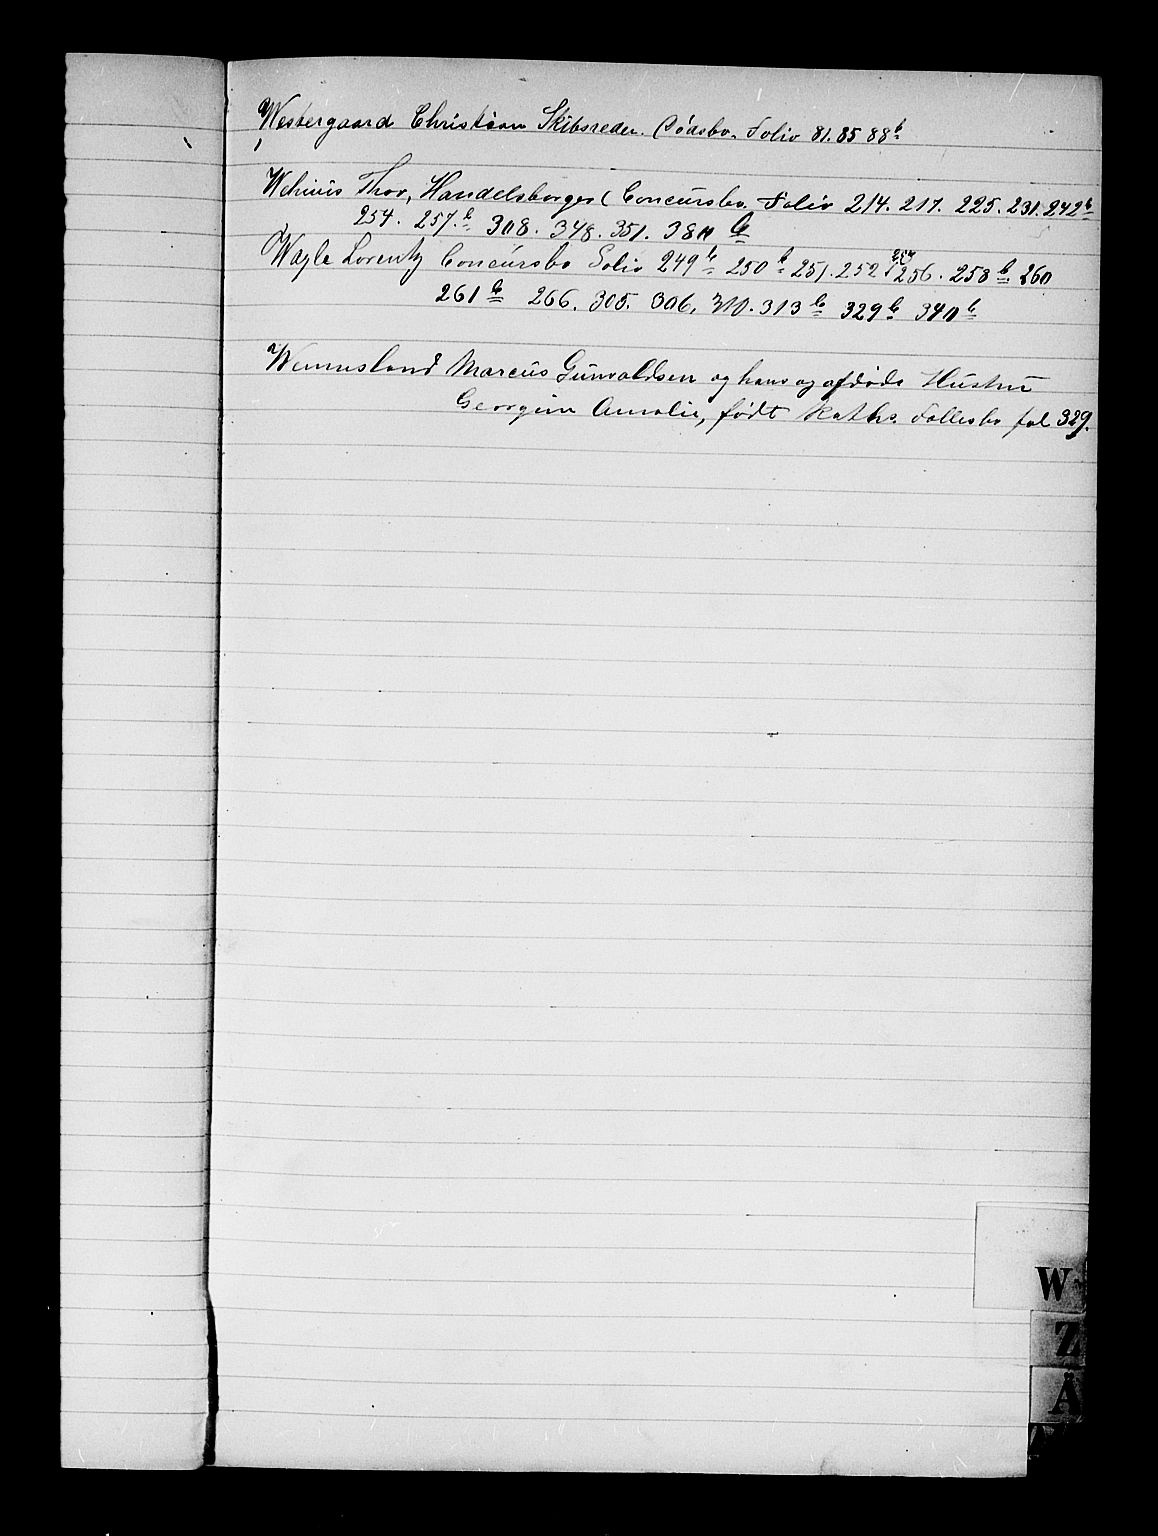 Westergaard Christian Skibsreder. Dødsbo. Folio 81. 85 88 b
Wehuus Thor, Handelsborger Concursbo. Folio 214. 217. 225. 231. 242 b
254. 257. b 308. 348. 351. 380 b
Wayle Lorentz Concursbo Folio 249 b 250 b 251. 252 253 256. 258 b. 260
261 b 266. 305. 306. 310. 313 b 329 b 340 b
Wennesland Marcus Gunvaldsen og hans og afdøde Hustru
Georgine Amalie, født Raths. Fællesbo fol 329.
W
Z
Å